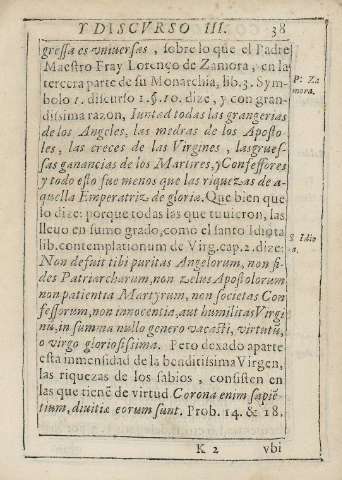 Y DISCVRSO III. 38
gressa es vniuersas, sobre lo que el Padre
Maestro Fray Lorenço de Zamora, en la
tercera parte de su Monarchia, lib. 3. Sym-
bolo 1. discurso 1. §. 10. dize, y con gran-
dissima razon, Iuntad todas las grangerias
de los Angeles, las medras de los Aposto-
les, las creces de las Virgines, las grues-
sas ganancias de los Martires, y Confessores
y todo esto fue menos que las riquezas de a-
quella Emperatriz de gloria. Que bien que
lo dize: porque todas las que tuuieron, las
lleuo en sumo grado, como el santo Idiota
lib. contemplationum de Virg. cap. 2. dize:
Non defuit tibi puritas Angelorum, non fi-
des Patriarcharum, non zelus Apostolorum
non patientia Martyrum, non societas Con
fessorum, non innocentia, aut humilitas Virgi
nũ, in summa nullo genero vacasti, virtutũ,
o virgo gloriosissima. Pero dexado aparte
esta immensidad de la benditissima Virgen,
las riquezas de los sabios, consisten en
las que tienẽ de virtud Corona enim sapiẽ
tium, diuitiæ eorum sunt. Prob. 14. & 18.
K 2 vbi
P. Za
mora.
S. Idio
a.